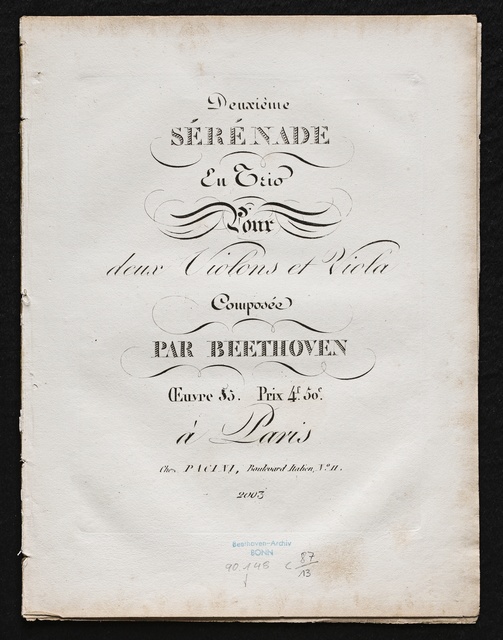 Deuxième
SÉRÉNADE
En Trio
Pour
deux Violons et Viola
Composée
PAR BEETHOVEN
Œuvre 85. Prix 4f. 50c.
à Paris
Chez PACINI, Boulevard Italien, No. 11.
2003
Beethoven-Archiv
BONN
90.145 C 87/13